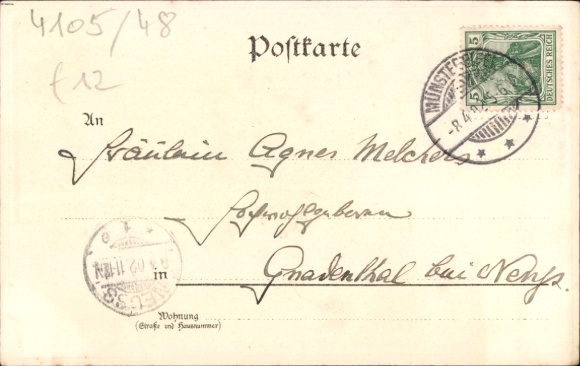 4105/48
Postkarte
£12
5
5
DEUTSCHES REICH
MÜNSTER
-8.4.
An
Fräulein Agnes Melchers
Hochwohlgeboren
02.11-12N.
in
Gnadenthal bei Neuss.
NEUSS
Wohnung
(Straße und Hausnummer)